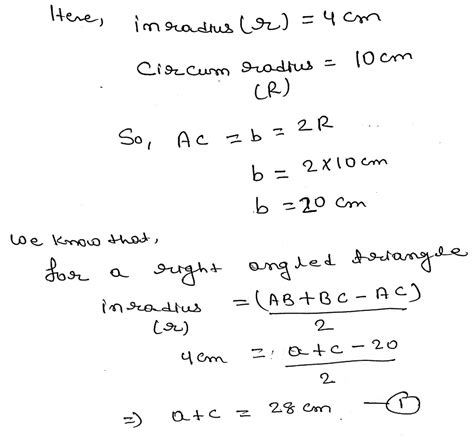 Here, inradius (r) = 4 cm
Circum radius = 10 cm
(R)
So, AC = b = 2R
b = 2×10 cm
b = 20 cm
we know that,
for a right angled triangle
inradius (r) = (AB + BC - AC) / 2
4 cm = a + c - 20 / 2
⇒ a + c = 28 cm — ①